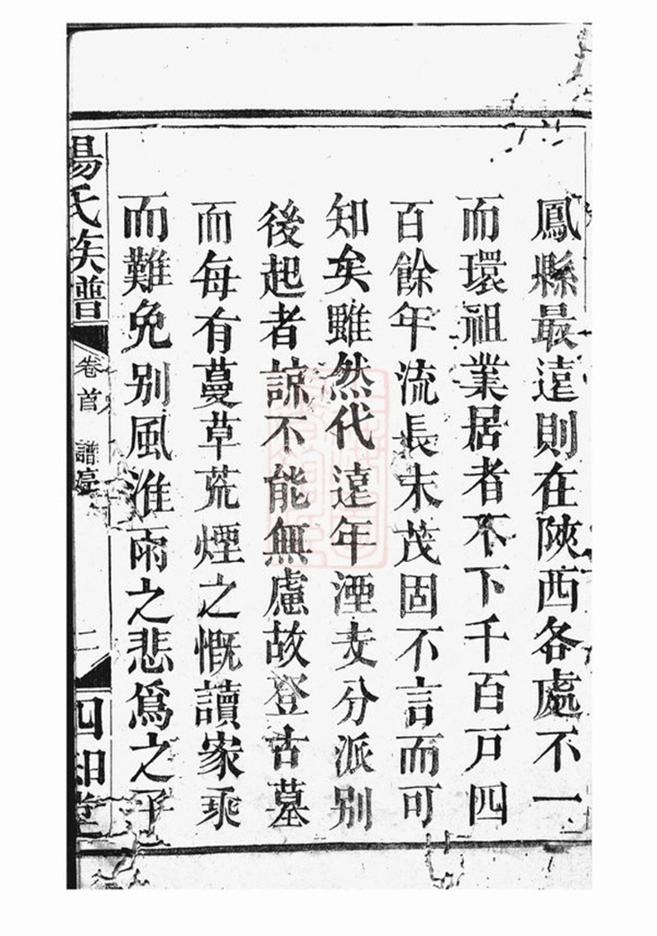 鳳縣最遠則在陝西各處不一
而環祖業居者不下千百戸四
百餘年流長末茂固不言而可
知矣雖然代遠年湮支分派别
後起者諒不能無慮故登古墓
而每有蔓草荒煙之慨讀家乘
而難免别風淮雨之悲爲之
楊氏族譜
卷首
譜
二
四知堂